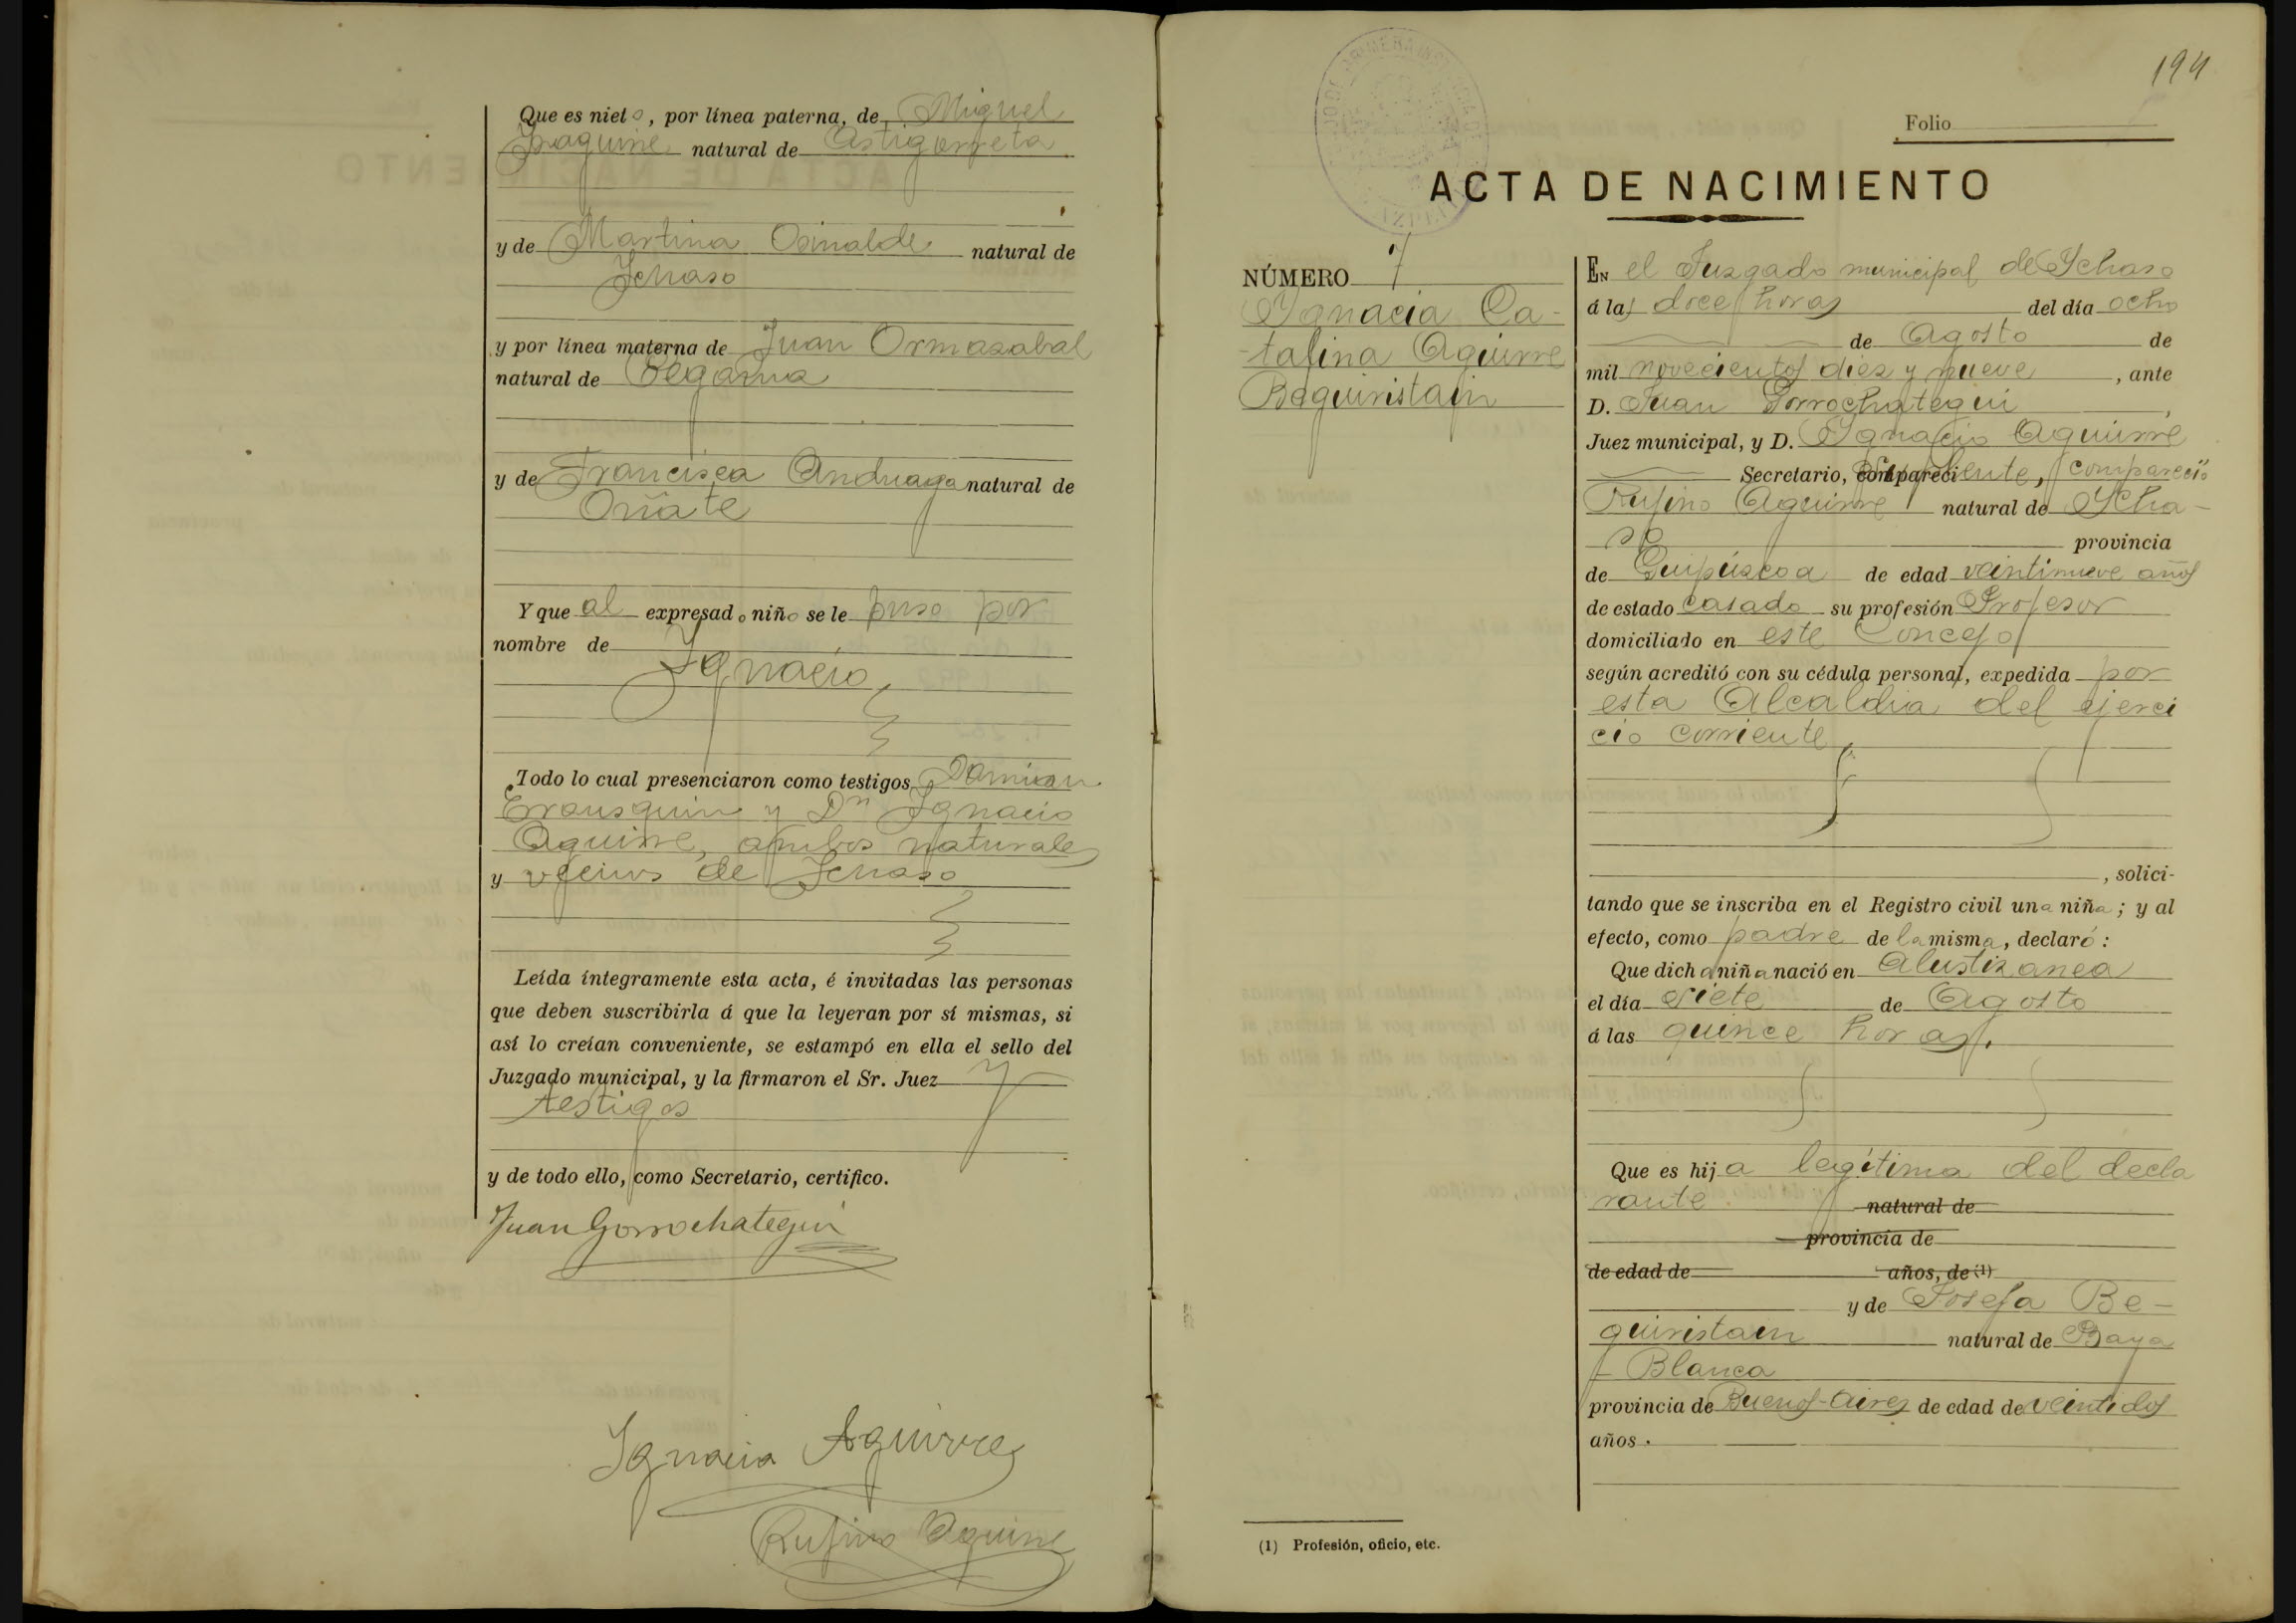 Que es nieto, por línea paterna, de Miguel
Yraguirre natural de Astigarreta
y de Martina Osinalde natural de
Ichaso
y por línea materna de Juan Ormazabal
natural de Cegama
y de Francisca Anduaga natural de
Oñate
Y que al expresado niño se le puso por
nombre de
Ignacio,
Todo lo cual presenciaron como testigos Damian
Erausquin y Dn Ignacio
Aguirre, ambos naturales
y vecinos de Ichaso
Leída íntegramente esta acta, é invitadas las personas
que deben suscribirla á que la leyeran por sí mismas, si
así lo creían conveniente, se estampó en ella el sello del
Juzgado municipal, y la firmaron el Sr. Juez y
testigos
y de todo ello, como Secretario, certifico.
Juan Gorrochategui
Ignacio Aguirre
Rufino Aguirre
194
Folio
ACTA DE NACIMIENTO
NÚMERO 7
Ygnacia Ca-
-talina Aguirre
Beguiristain
EN el Juzgado municipal de Ychaso
á las doce horas del día ocho
de Agosto de
mil novecientos diez y nueve, ante
D. Juan Gorrochategui,
Juez municipal, y D. Ygnacio Aguirre
Secretario, compareci Suplente, compareció
Rufino Aguirre natural de Ycha-
so provincia
de Guipúzcoa de edad veintinueve años
de estado casado su profesión Profesor
domiciliado en este Concejo
según acreditó con su cédula personal, expedida por
esta Alcaldia del ejerci
cio corriente,
, solici-
tando que se inscriba en el Registro civil una niña; y al
efecto, como padre de la misma, declaró:
Que dicha niña nació en Alustizanea
el día siete de Agosto
á las quince horas.
Que es hija legítima del decla
rante. natural de
provincia de
de edad de años, de (1)
y de Josefa Be-
guiristain natural de Baya
- Blanca
provincia de Buenos-Aires de edad de veintidos
años.
(1) Profesión, oficio, etc.